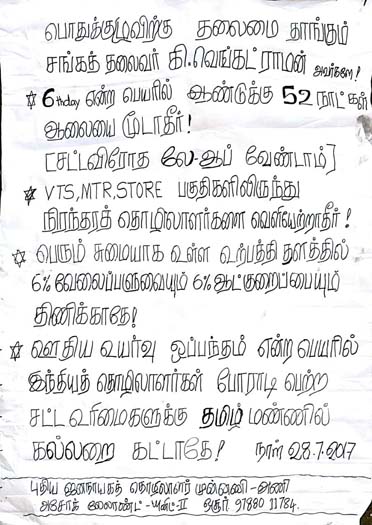 பொதுக்குழுவிற்கு தலைமை தாங்கும்
சங்கத் தலைவர் கி.வெங்கட்ராமன் அவர்களே!
✡ 6thday என்ற பெயரில் ஆண்டுக்கு 52 நாட்கள்
ஆலையை மூடாதீர்!
[சட்டவிரோத லே-ஆப் வேண்டாம்]
✡ VTS,MTR,STORE பகுதிகளிலிருந்து
நிரந்தரத் தொழிலாளர்களை வெளியேற்றாதீர்!
✡ பெரும் சுமையாக உள்ள உற்பத்தி தளத்தில்
6% வேலைப்பளுவையும் 6% ஆட்குறைப்பையும்
திணிக்காதே!
✡ ஊதிய உயர்வு ஒப்பந்தம் என்ற பெயரில்
இந்தியத் தொழிலாளர்கள் போராடி பெற்ற
சட்ட உரிமைகளுக்கு தமிழ் மண்ணில்
கல்லறை கட்டாதே! நாள் 28.7.2017
புதிய ஜனநாயகத் தொழிலாளர் முன்னணி-அணி
அசோக் லேலாண்ட்-யூனிட்-II ஒசூர் 97880 11784.